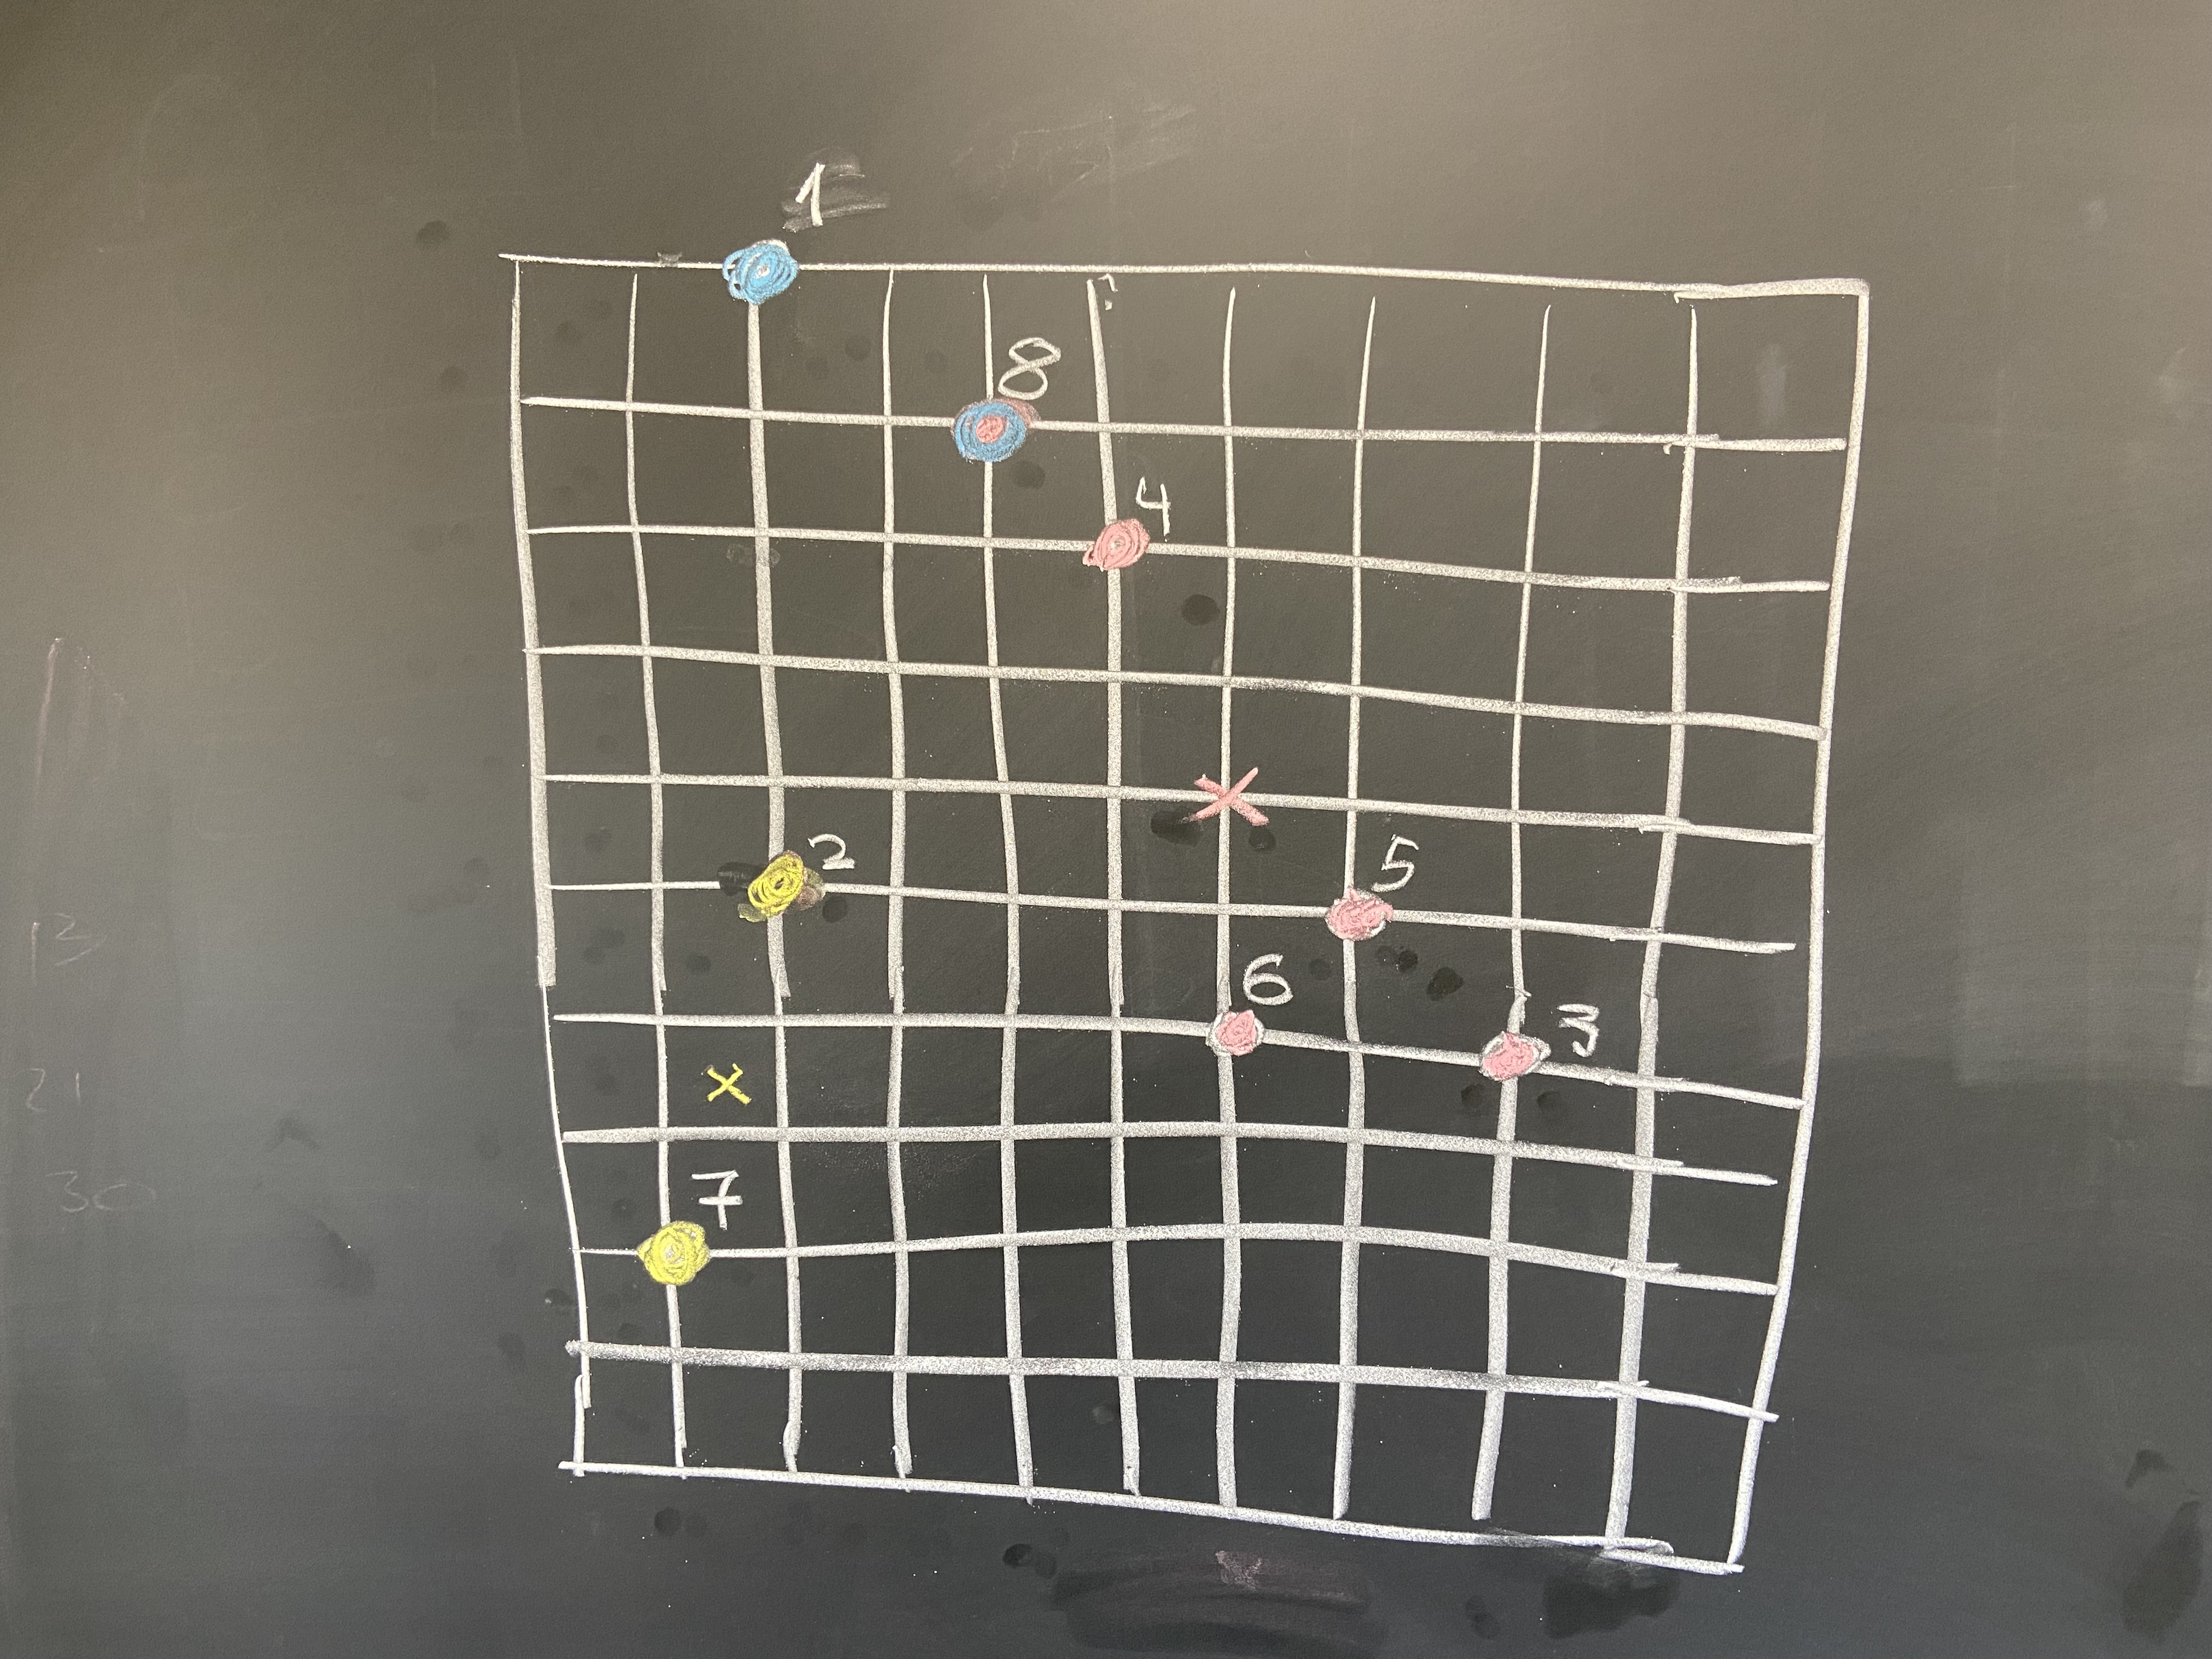 1
8
4
2
5
6
3
7
13
21
30